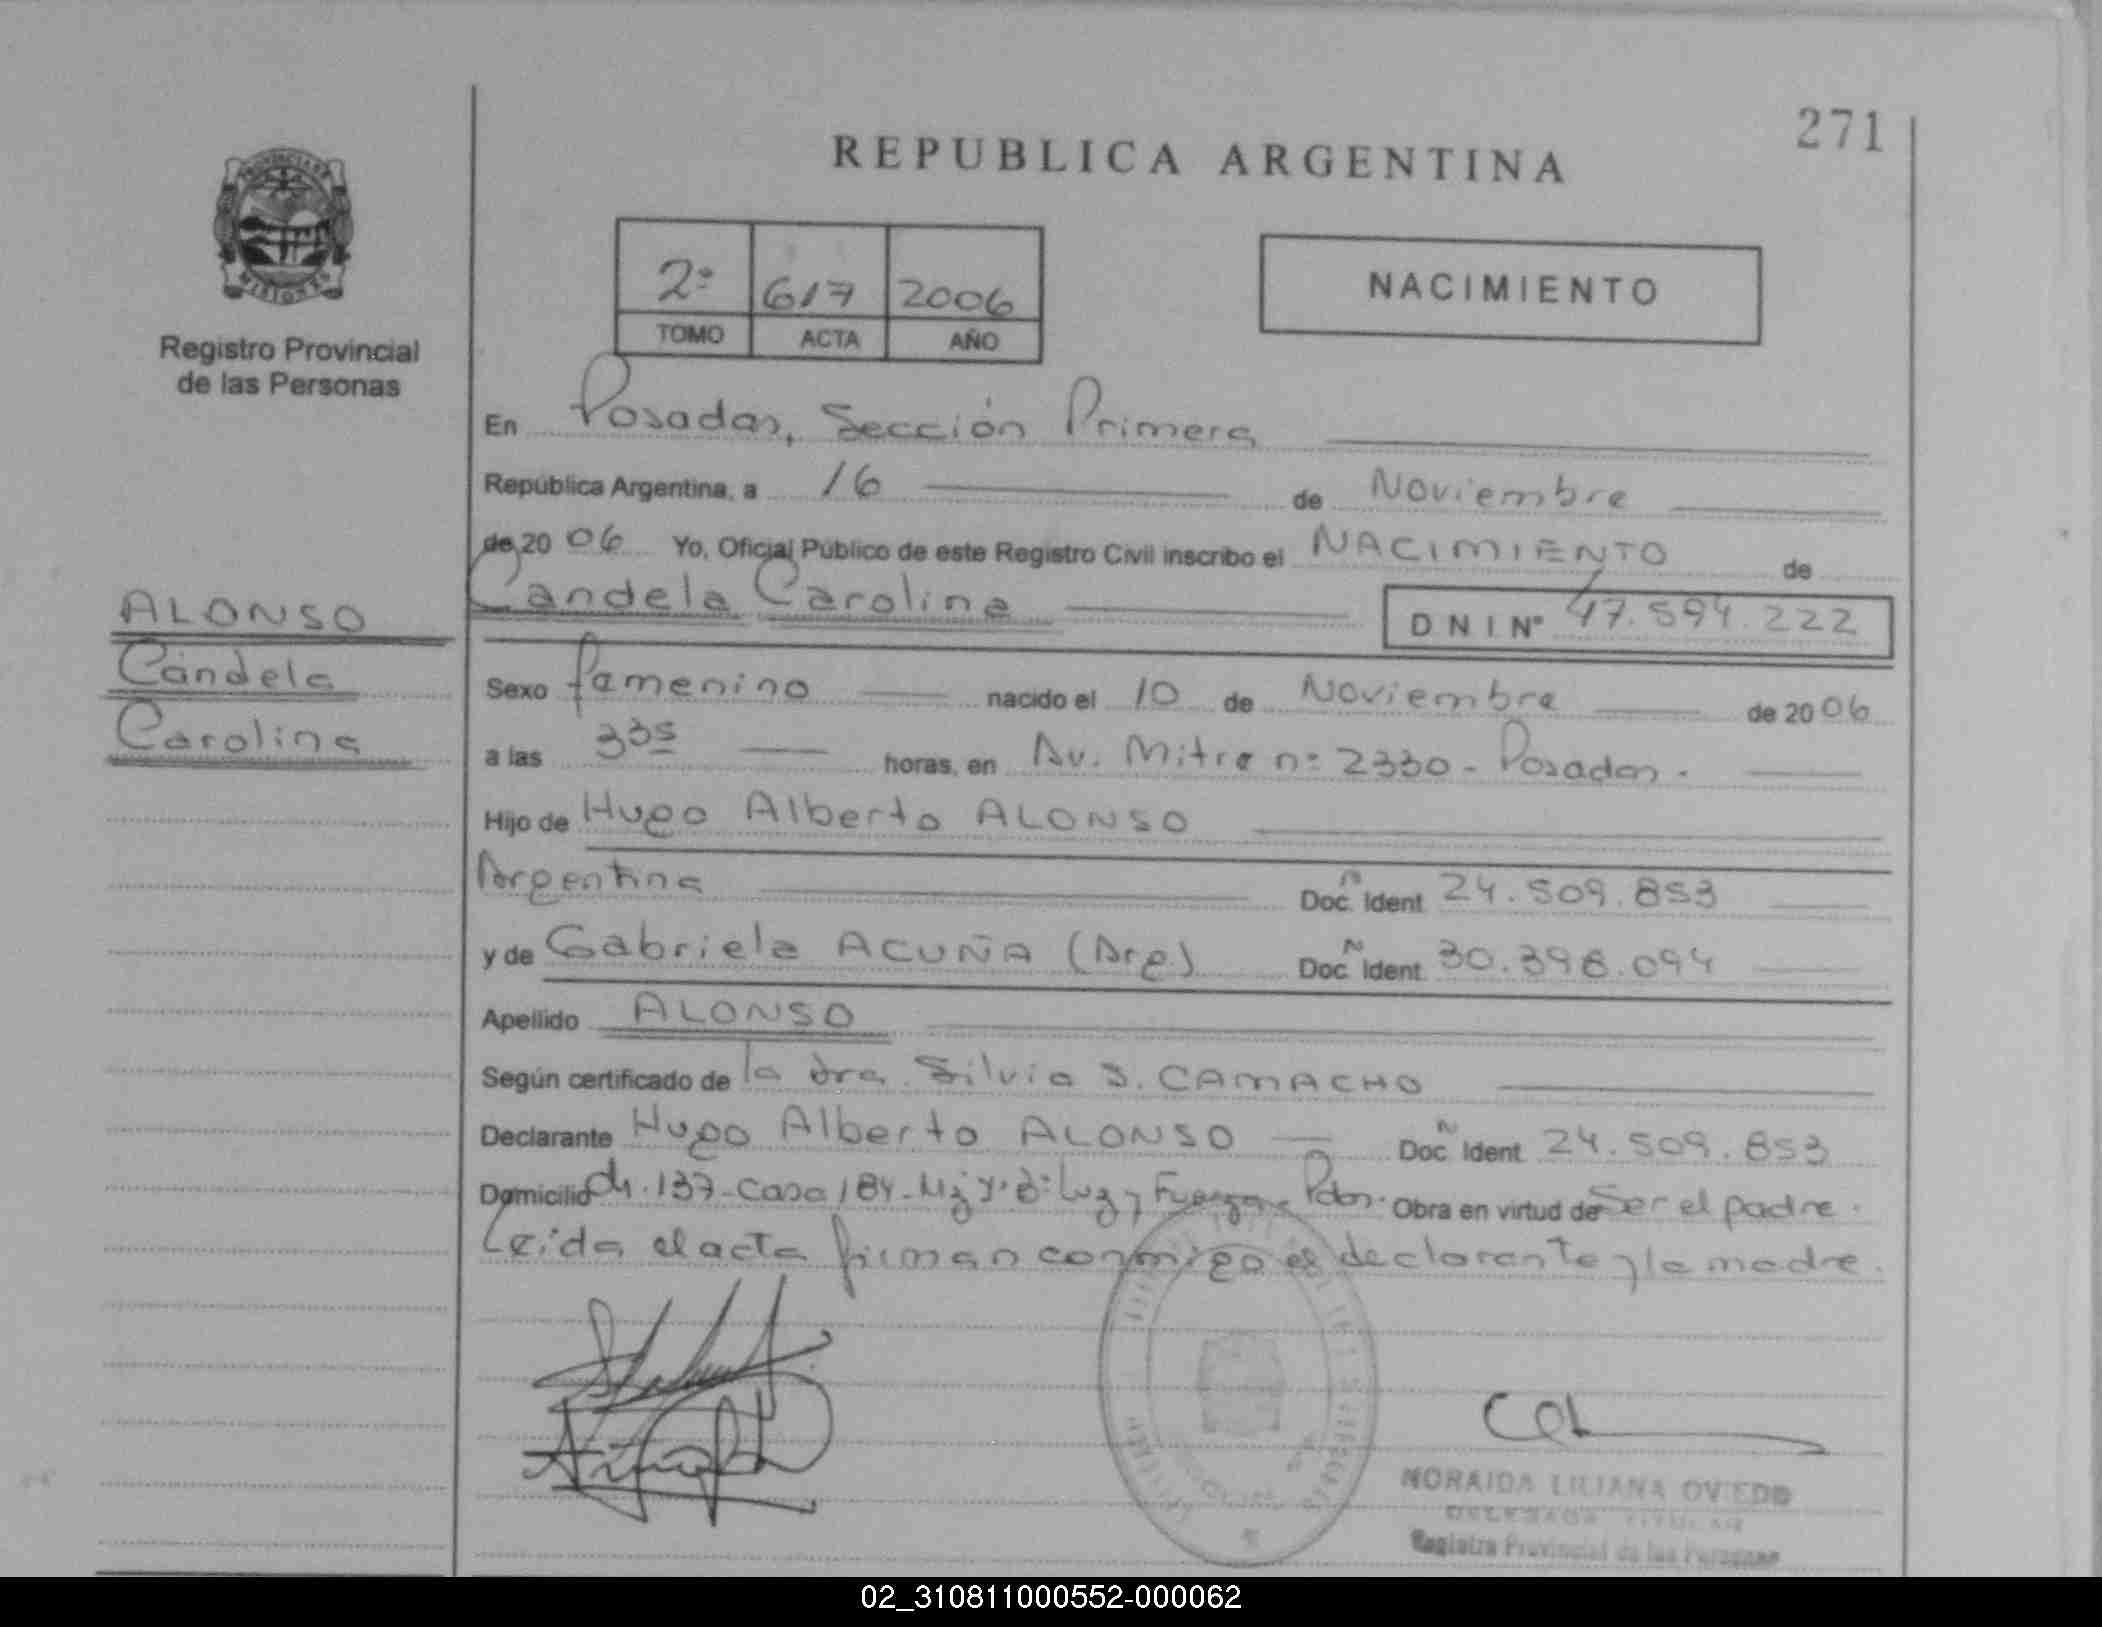 271
REPUBLICA ARGENTINA
PROVINCIA DE
MISIONES
Registro Provincial
de las Personas
2º 617 2006
TOMO ACTA AÑO
NACIMIENTO
En Posadas, Sección Primera
República Argentina, a 16 de Noviembre
de 2006 Yo, Oficial Público de este Registro Civil inscribo el NACIMIENTO de
Candela Carolina DNI Nº 47.594.222
ALONSO
Candela
Carolina
Sexo famenino nacido el 10 de Noviembre de 2006
a las 335 horas, en Av. Mitre nº 2330 - Posadas.
Hijo de Hugo Alberto ALONSO
Argentina Doc. Ident. 24.509.853
y de Gabriela ACUÑA (Arg) Doc. Ident. 30.398.094
Apellido ALONSO
Según certificado de la dra. Silvia S. CAMACHO
Declarante Hugo Alberto ALONSO Doc. Ident. 24.509.853
Domicilio Ch. 137 - Casa 184 - Mz Luz y Fuerza - Pdas. Obra en virtud de Ser el padre.
Leida el acta firman conmigo el declarante y la madre.
NORAIDA LILIANA OVIEDO
DELEGADA TITULAR
Registro Provincial de las Personas
02_310811000552-000062